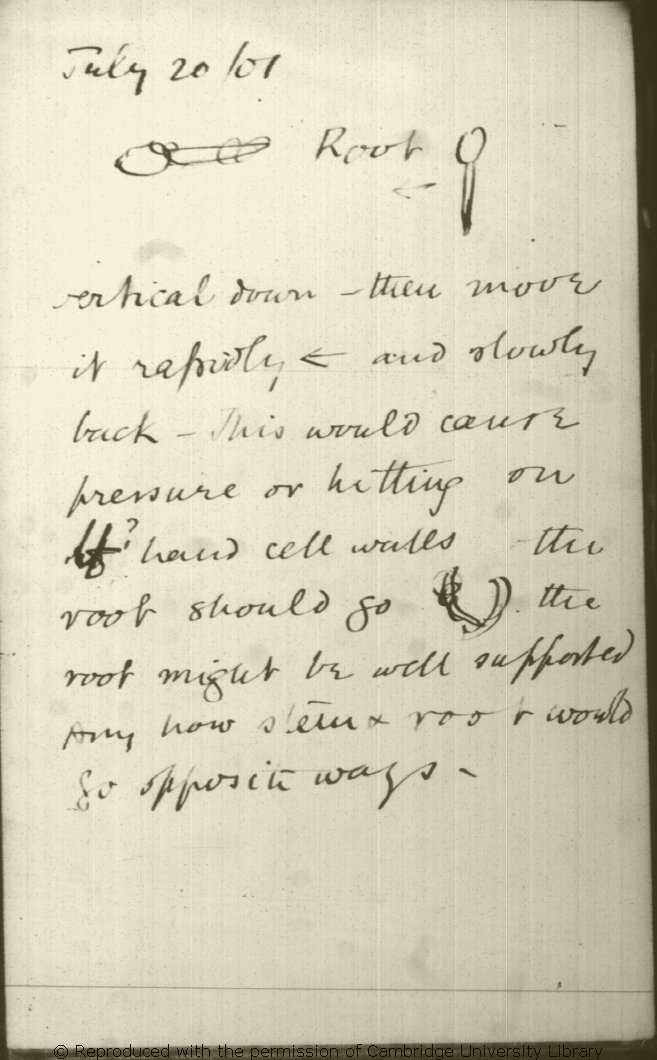 July 20/01
Root
←
vertical down – then move
it rapidly ← and slowly
back – This would cause
pressure or hitting on
? hand cell walls the
root should go the
root might be well supported
Any how stem & root would
go opposite ways –
© Reproduced with the permission of Cambridge University Library